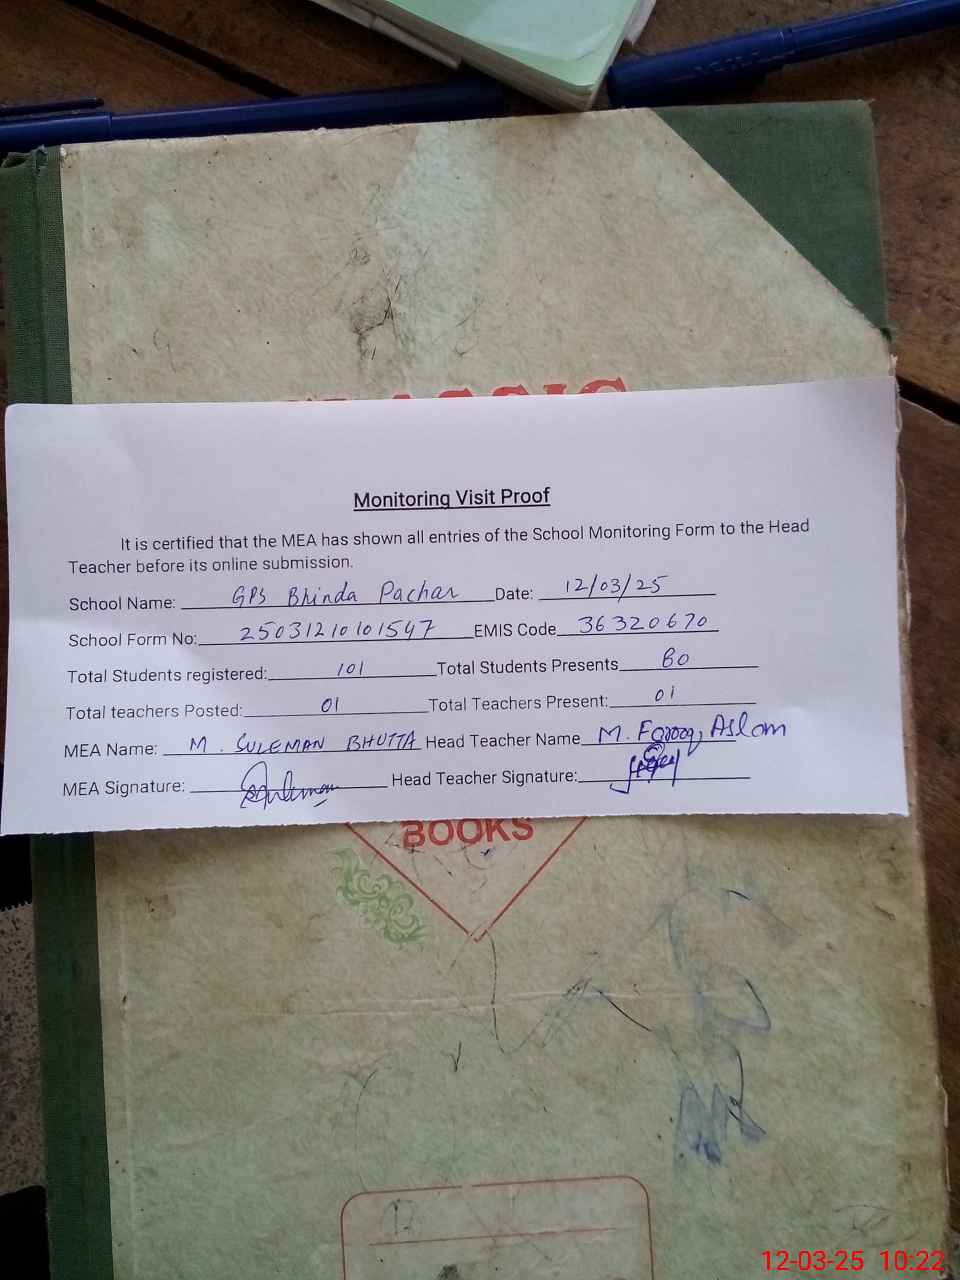 CLASSIC
Monitoring Visit Proof
It is certified that the MEA has shown all entries of the School Monitoring Form to the Head
Teacher before its online submission.
School Name: GPS Bhinda Pachar Date: 12/03/25
School Form No: 25031210101547 EMIS Code 36320670
Total Students registered: 101 Total Students Presents 80
Total teachers Posted: 01 Total Teachers Present: 01
MEA Name: M. SULEMAN BHUTTA Head Teacher Name M. Farooq Aslam
MEA Signature: Head Teacher Signature:
BOOKS
12-03-25 10:22